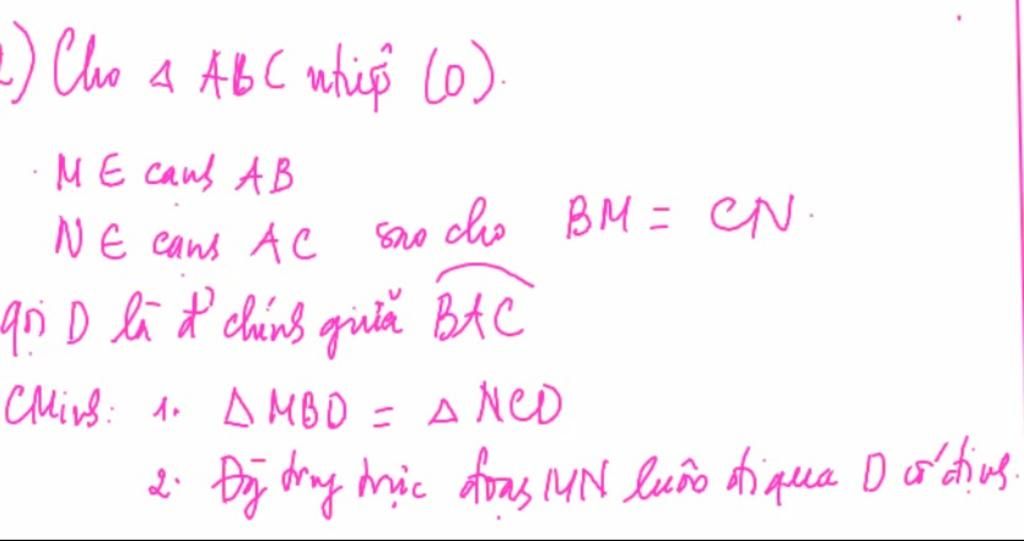 2) Cho Δ ABC ntiếp (O).
M ∈ cạnh AB
N ∈ cạnh AC sao cho BM = CN.
gọi D là đ' chính giữa BAC
CMinh: 1. Δ MBD = Δ NCD
2. Đg trung trực đoạn MN luôn đi qua D cố định.